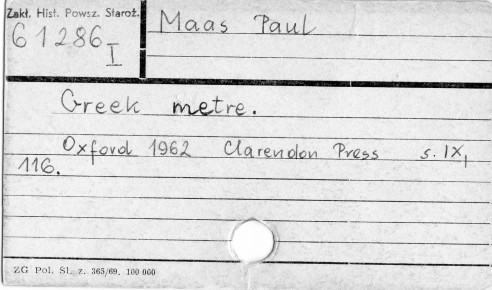 Zakł. Hist. Powsz. Staroż.
61286 I
Maas Paul
Greek metre.
Oxford 1962 Clarendon Press s. IX,
116.
ZG Pol. Śl. z. 365/69. 100 000